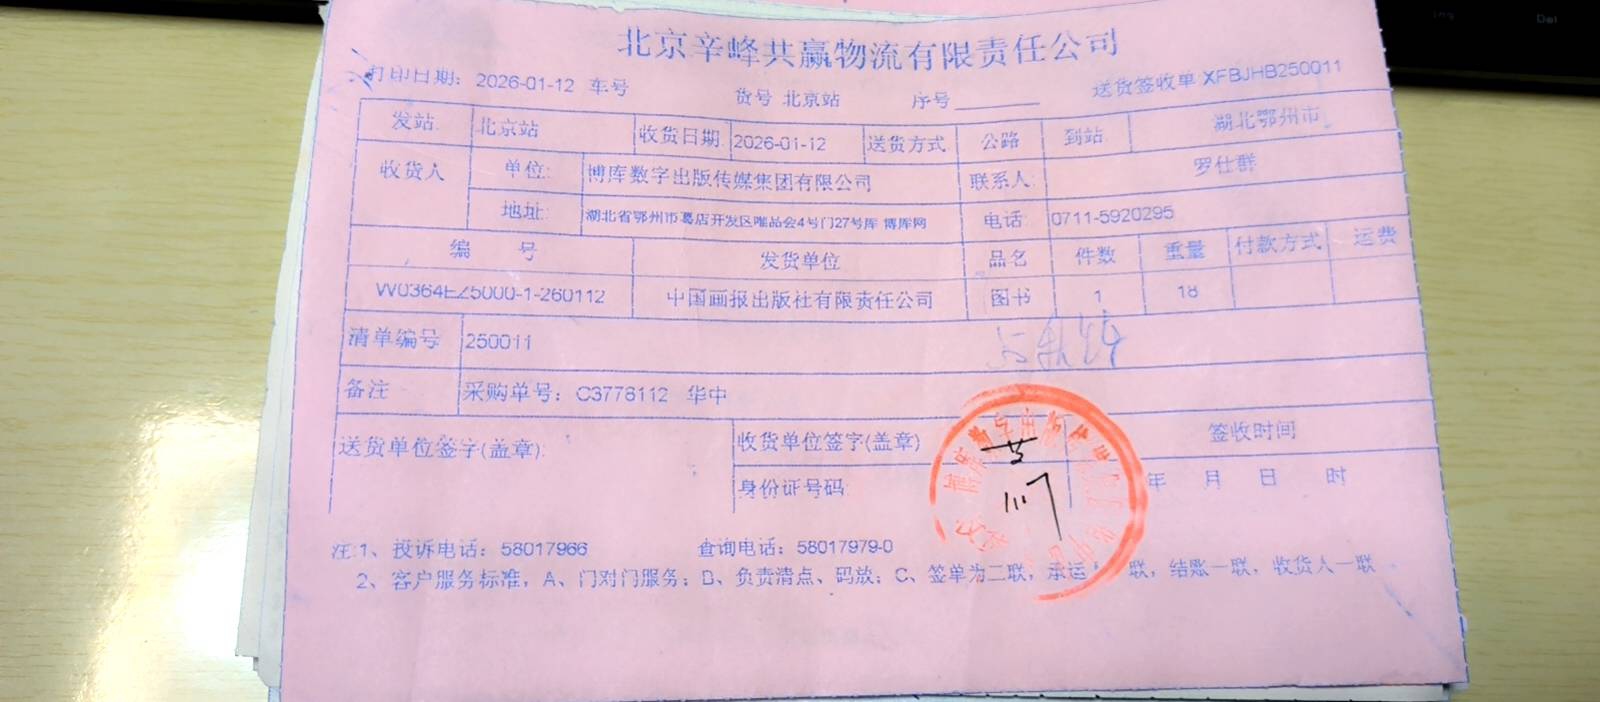 北京辛峰共赢物流有限责任公司
打印日期： 2026-01-12 车号 货号 北京站 序号 送货签收单 XFBJHB250011
发站 北京站 收货日期 2026-01-12 送货方式 公路 到站 湖北鄂州市
收货人 单位: 博库数字出版传媒集团有限公司 联系人 罗仕群
地址: 湖北省鄂州市葛店开发区唯品会4号门27号库 博库网 电话 0711-5920295
编 号 发货单位 品名 件数 重量 付款方式 运费
W0364EZ5000-1-260112 中国画报出版社有限责任公司 图书 1 18
清单编号 250011
备注 采购单号：C3778112 华中
送货单位签字(盖章): 收货单位签字(盖章) 签收时间
身份证号码 年 月 日 时
注:1、投诉电话：58017966 查询电话：58017979-0
2、客户服务标准，A、门对门服务；B、负责清点、码放；C、签单为三联，承运人一联，结账一联，收货人一联